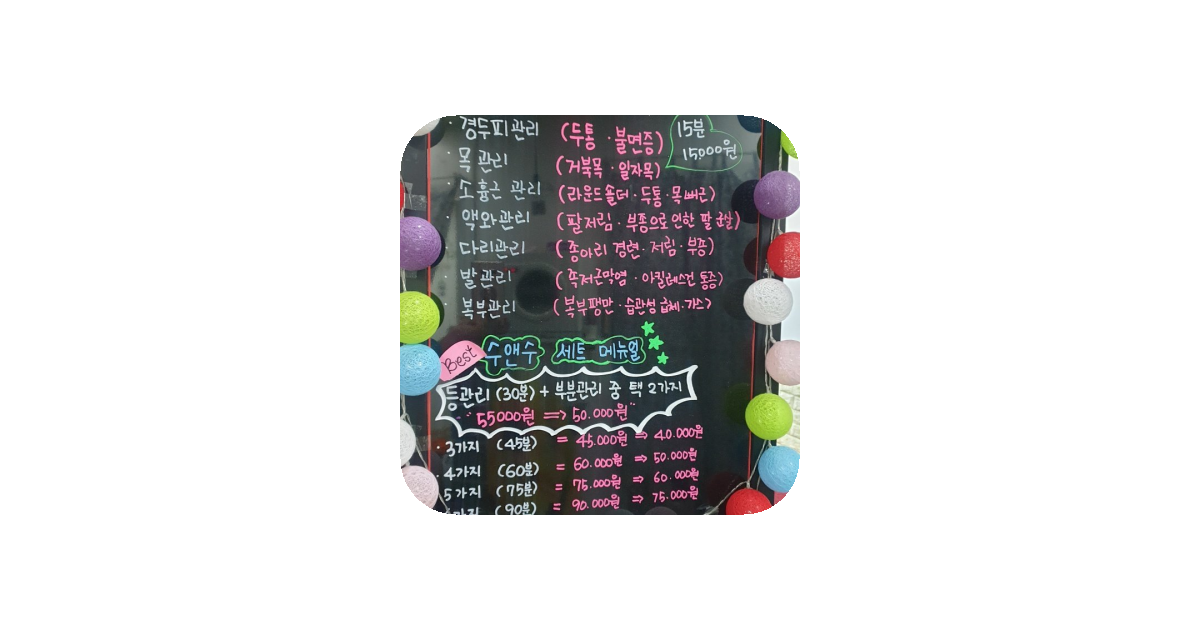 · 경두피관리 (두통 · 불면증) 15분 15000원
· 목관리 (거북목 · 일자목)
· 소흉근 관리 (라운드숄더 · 두통 · 목뻐근)
· 액와관리 (팔저림 · 부종으로 인한 팔 군살)
· 다리관리 (종아리 경련 · 저림 · 부종)
· 발관리 (족저근막염 · 아킬레스건 통증)
· 복부관리 (복부팽만 · 습관성 급체 · 가스)
Best 수앤수 세트 메뉴얼
등관리 (30분) + 부분관리 중 택 2가지
55000원 => 50.000원
· 3가지 (45분) = 45.000원 => 40.000원
· 4가지 (60분) = 60.000원 => 50.000원
5가지 (75분) = 75.000원 => 60.000원
가지 (90분) = 90.000원 => 75.000원